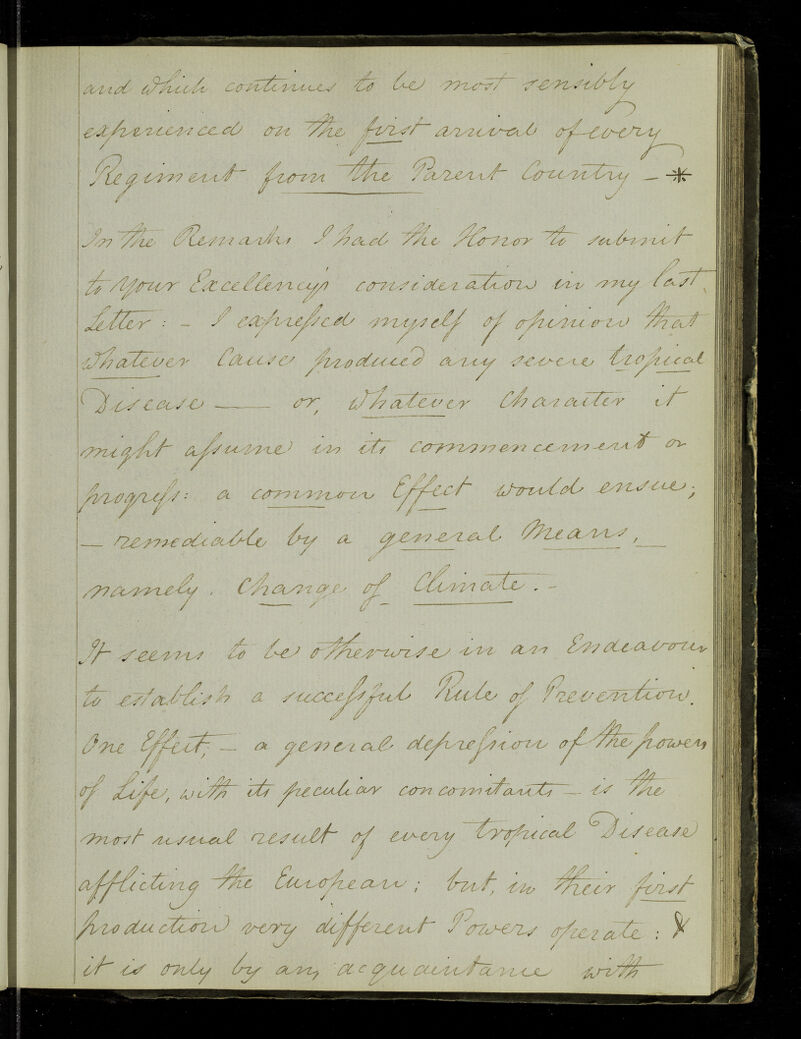 and which continues to be most sensibly
experienced on the first arrival of every
Regiment from the Parent Country - *
In the Remarks I had the Honor to submit
to your Excellency's consideration in my last
Letter: - I expreſsed myself of opinion that
whatever Cause produced any severe tropical
Disease — or, whatever Character it
might aſsume in its commencement or
progreſs: a common Effect would ensue;
- remediable by a general Means, -
namely. Change of Climate. -
It seems to be otherwise in an Endeavour
to establish a succeſsful Rule of Prevention.
One Effect, - a general depreſsion of the powers
of Life, with its peculiar concomitants - is the
most usual result of every tropical Disease
afflicting the European; but, in their first
production very different Powers operate: &
it is only by an acquaintance with